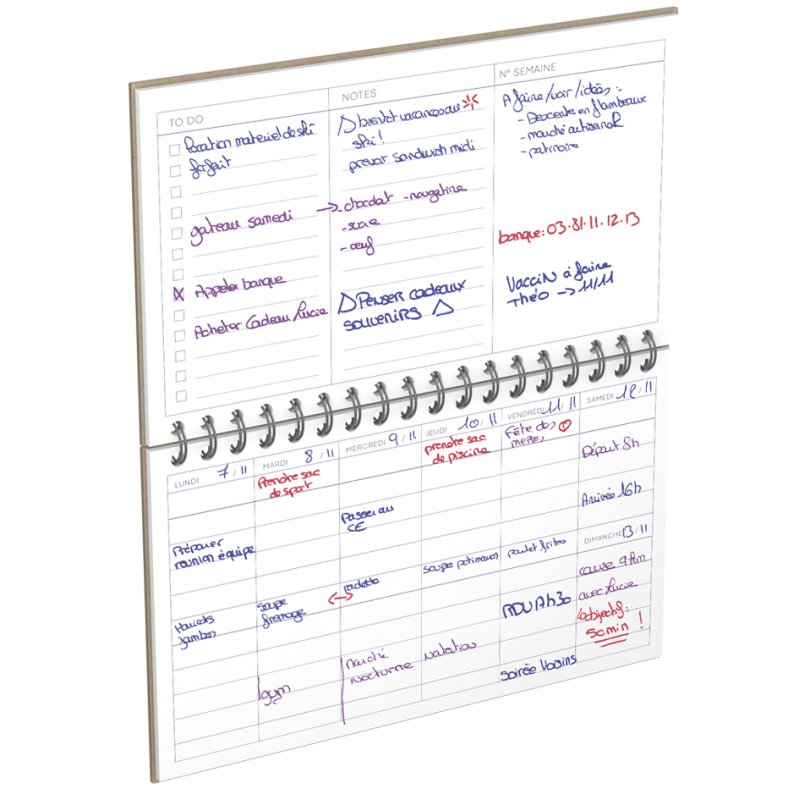 TO DO
Location matériel de ski
forfait
gateau samedi
Appeler banque
Acheter Cadeau Lucie
NOTES
bientot vacances au
ski !
prévoir sandwich midi
→ - chocolat - nougatine
- sucre
- œuf
Penser cadeaux
souvenirs
N° SEMAINE
A faire/voir/idées :
- Descente en flambeaux
- marché artisanal
- patinoire
banque: 03.81.11.12.13
Vaccin à faire
Théo → 11/11
LUNDI 7/11
Préparer
réunion équipe
Haricots
jambon
MARDI 8/11
Prendre sac
de sport
soupe
fromage
gym
MERCREDI 9/11
Passer au
CE
raclette
marché
nocturne
JEUDI 10/11
prendre sac
de piscine
soupe potimarron
natation
VENDREDI 11/11
Fête des
mères
poulet frites
RDV 17h30
soirée Voisins
SAMEDI 12/11
Départ 8h
Arrivée 16h
DIMANCHE 13/11
course 9 km
avec Lucie
objectif:
50 min !